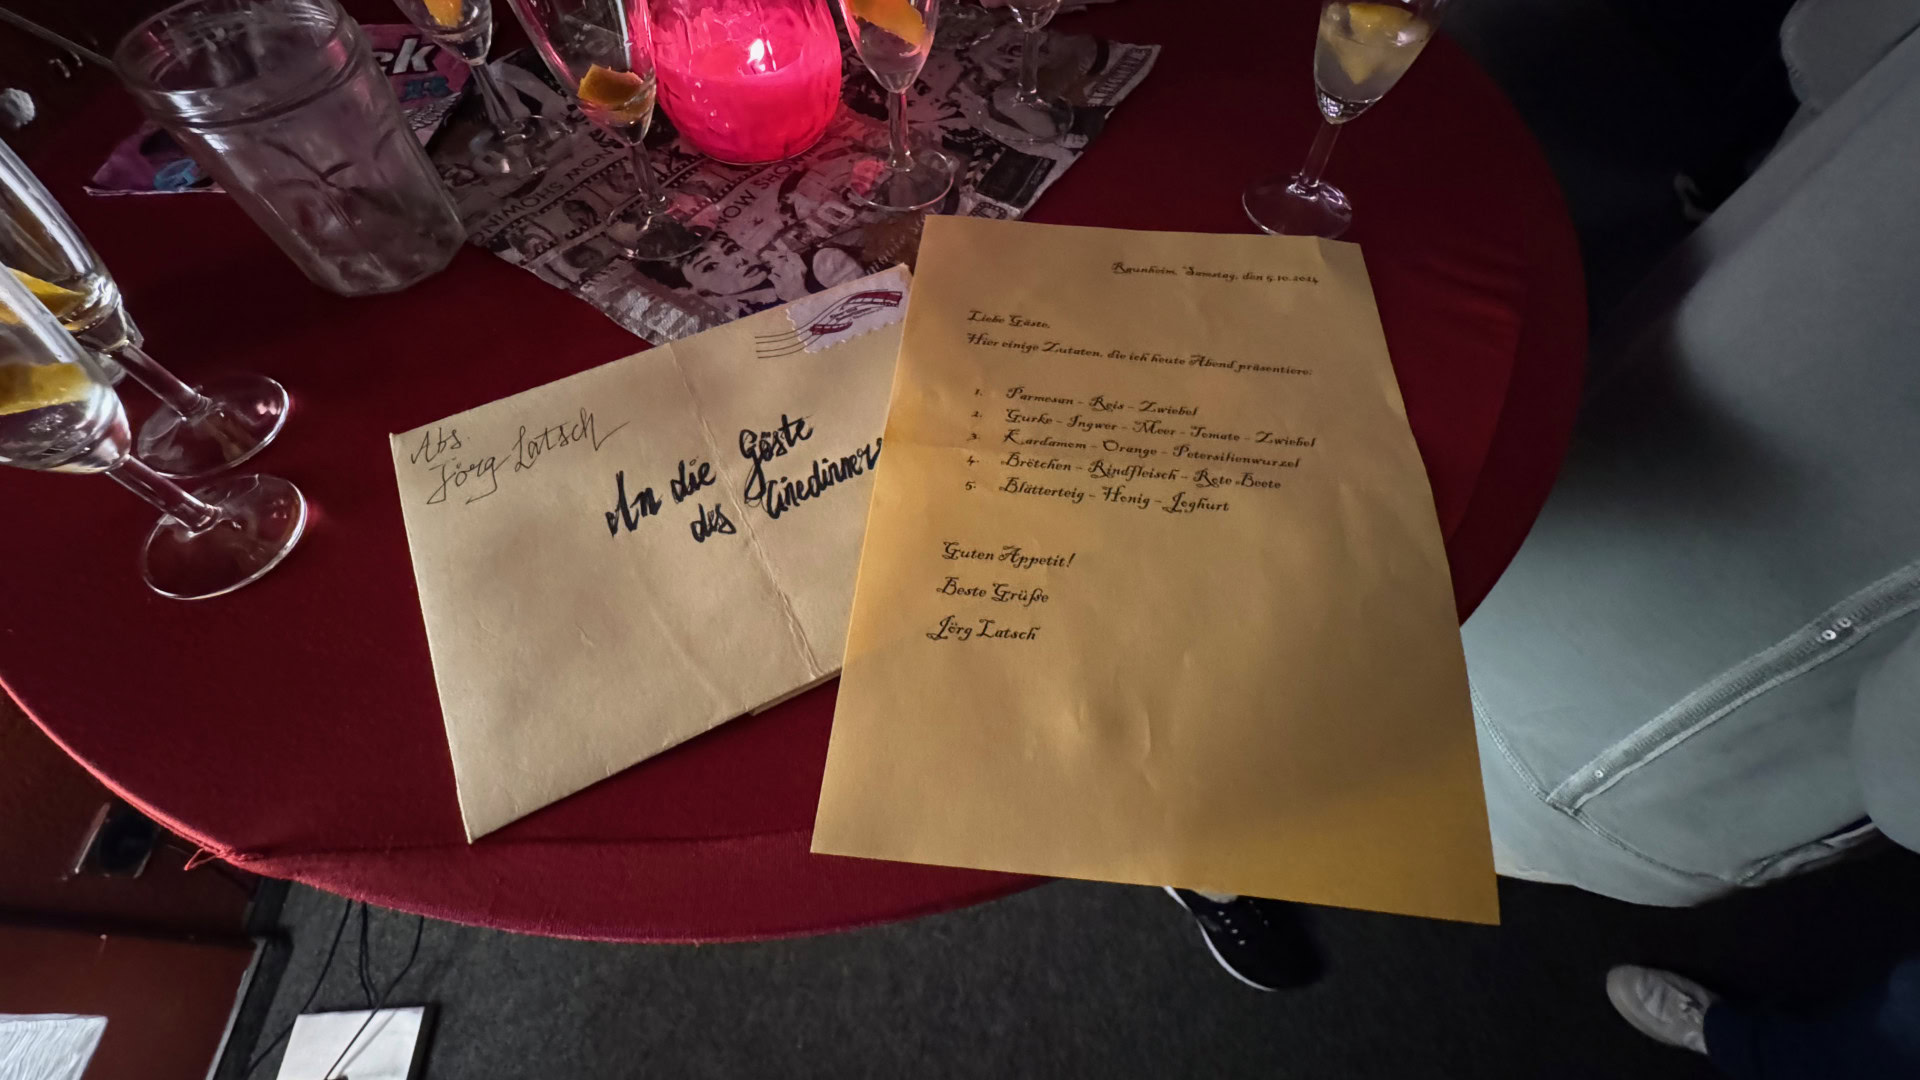 ek
NOW SHO
Abs.
Jörg Latsch
An die Gäste
des Cinedinners
Raunheim, Samstag, den 5.10.2024
Liebe Gäste,
Hier einige Zutaten, die ich heute Abend präsentiere:
1. Parmesan - Reis - Zwiebel
2. Gurke - Ingwer - Meer - Tomate - Zwiebel
3. Kardamom - Orange - Petersilienwurzel
4. Brötchen - Rindfleisch - Rote Beete
5. Blätterteig - Honig - Joghurt
Guten Appetit!
Beste Grüße
Jörg Latsch